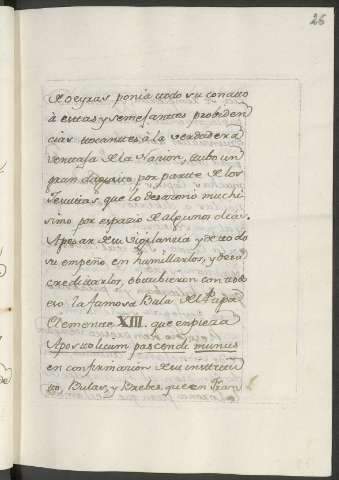 26
Oeyras ponia ttodo su conatto
à esttas y semejanttes probiden
cias ttocanttes à la verdadera
ventaja de la Nacion, ttubo un
gran disgusto por partte de los
Jesuittas, que lo desazonò muchi
simo por espacio de algunos dias.
Apesar de su vigilancia y de ttodo
su empeño en humillarlos, y desa
credittarlos, obttubieron con ttodo
eso la famosa Bula del Papa
Clementte XIII. que empieza
Aposttolicum pascendi munus
en confirmacion de su instittu
tto, Bulas, y Brebes que en Fran